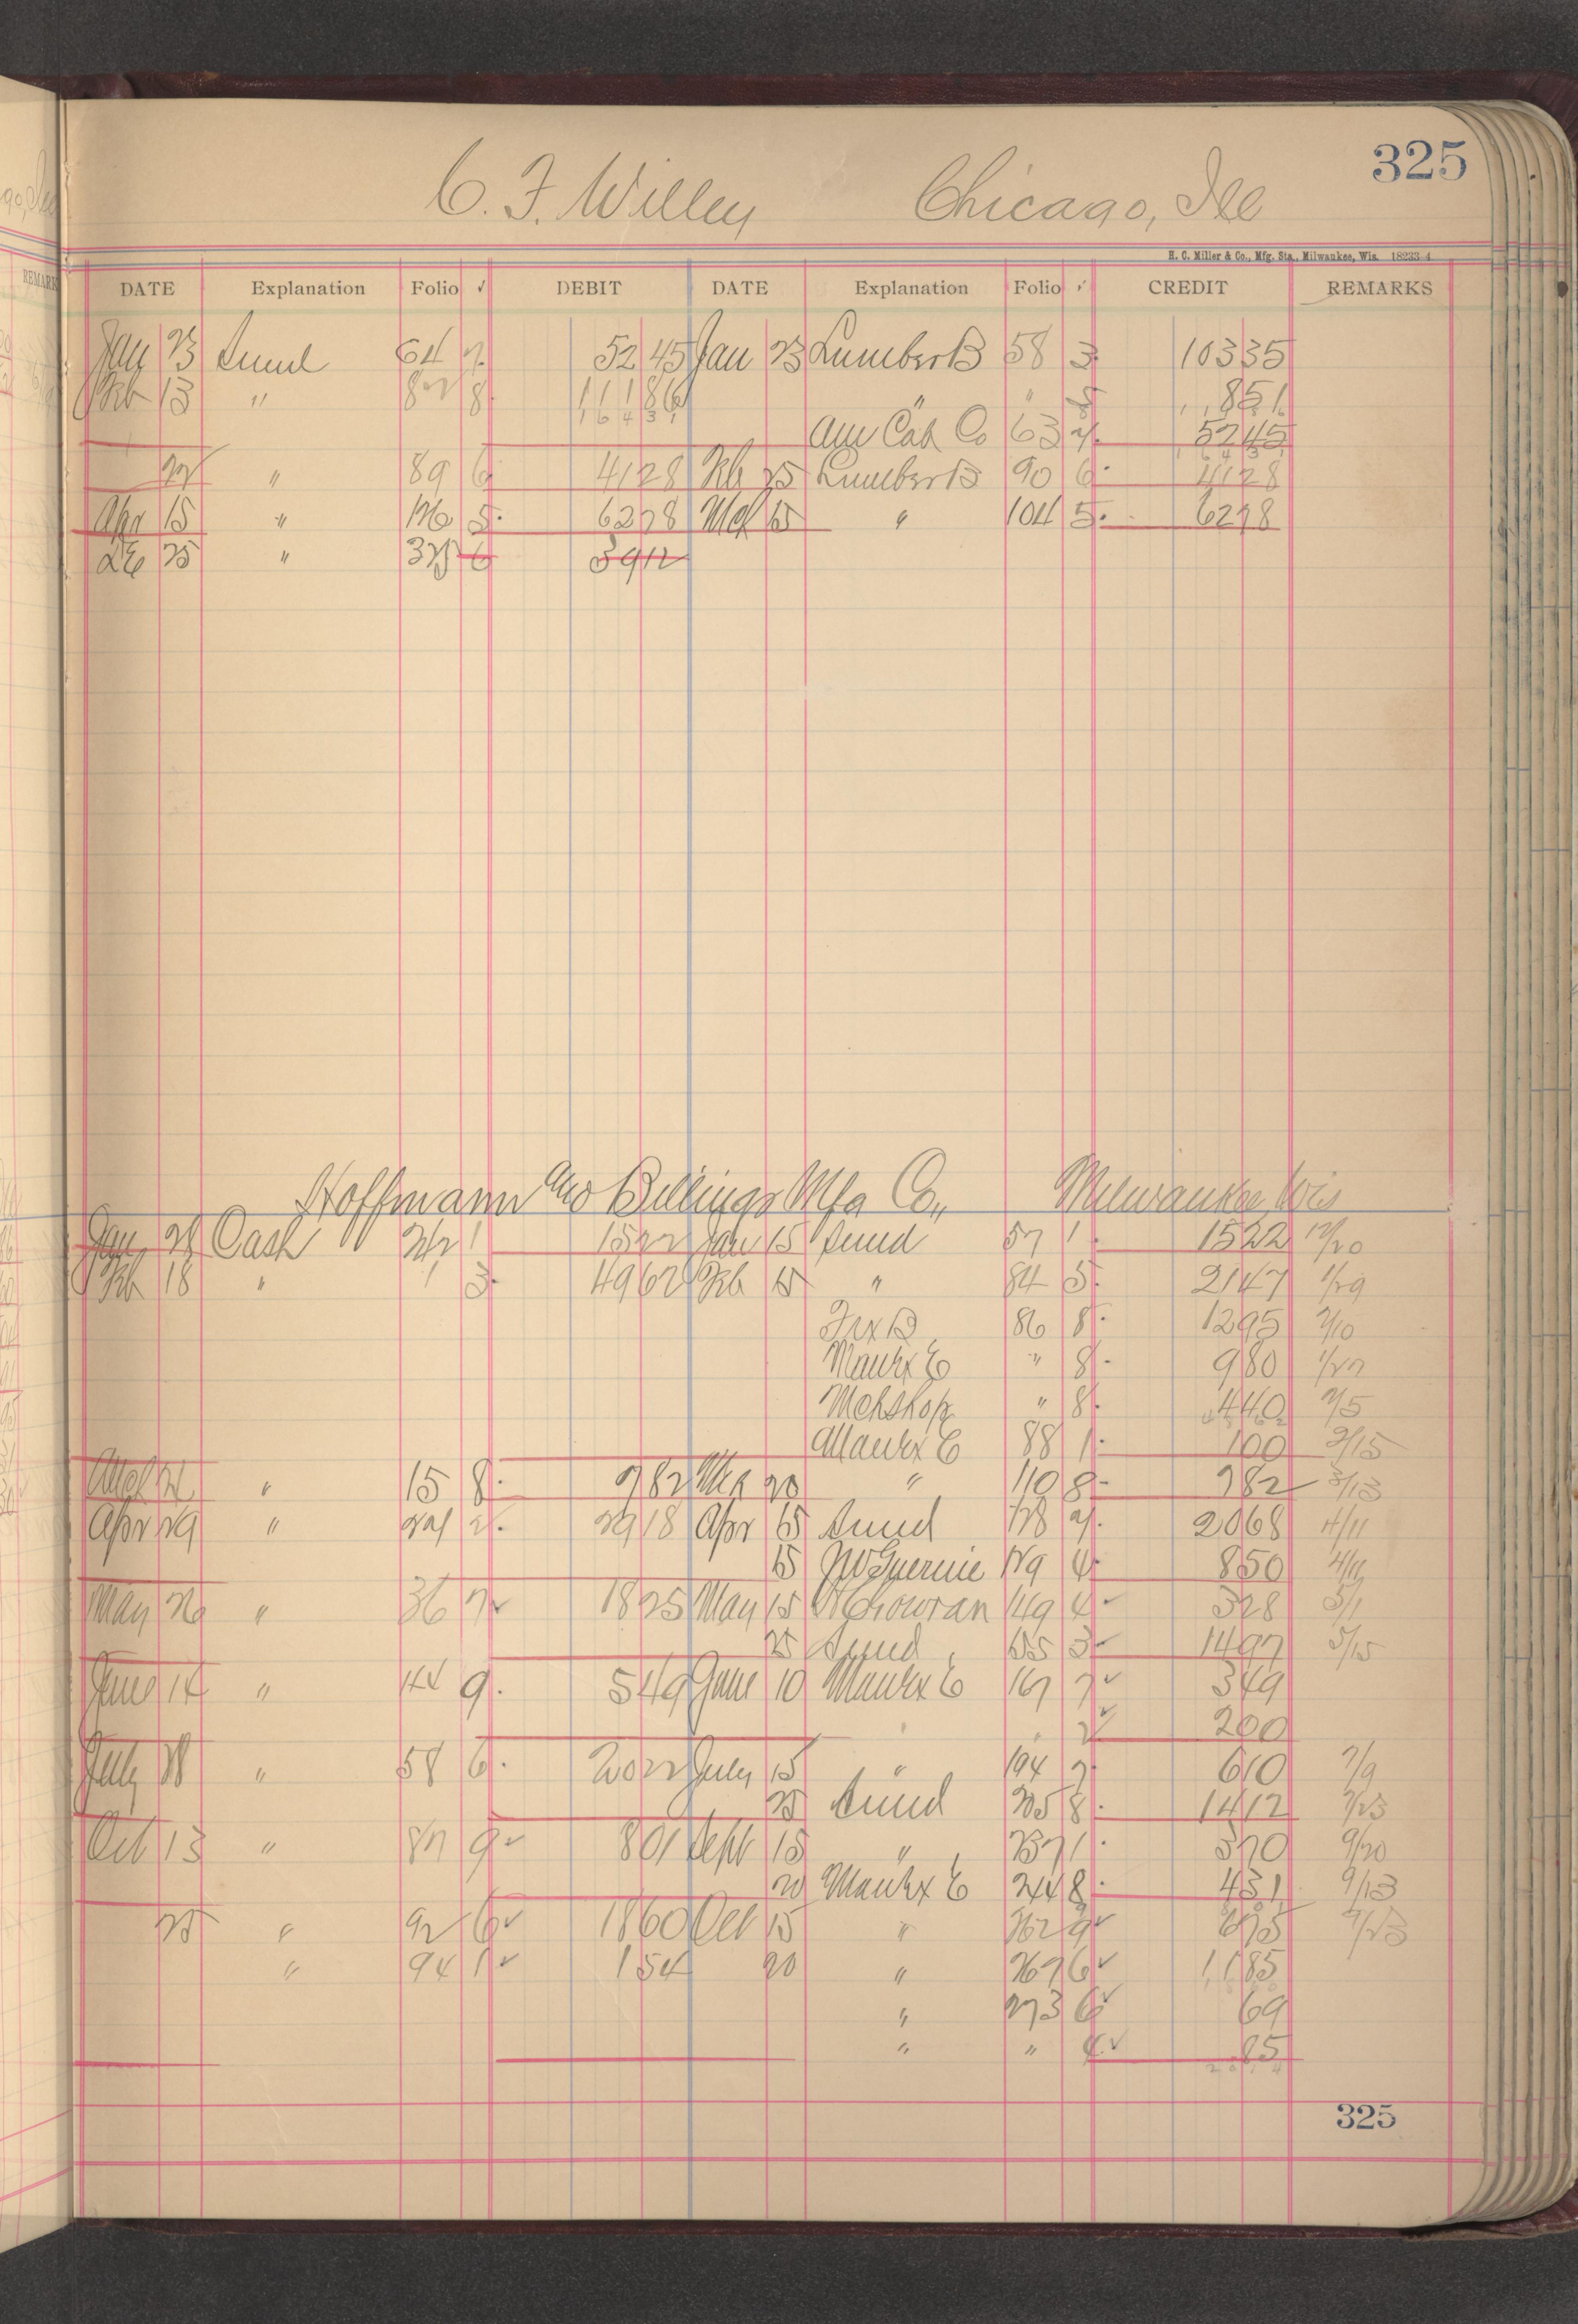 325
C. F. Willey Chicago, Ill
H. C. Miller & Co., Mfg. Sta., Milwaukee, Wis. 18233-4
DATE Explanation Folio ✓ DEBIT DATE Explanation Folio ✓ CREDIT REMARKS
Jan 23 Sund 64 7. 52 45 Jan 23 Lumber B 58 3 103 35
Feb 13 " 82 8 111 86 " " 8 51
164 31
Am Car Co 63 7. 52 45
22 " 89 6 41 28 Feb 25 Lumber B 90 6. 41 28
Apr 15 " 5. 62 78 Mch 15 " 104 5. 62 78
25 " 6 39 12
Hoffmann and Billings Mfg Co., Milwaukee, Wis
Jan, 28 Cash 1 15 22 Jan 15 Sund 57 1 15 22 12/20
Feb 18 " 3. 49 62 Feb 15 " 84 5. 21 47 1/29
Fix B 86 8. 12 95 2/10
Manfx E " 8. 9 80 1/27
Mchshop " 8. 4 40 2/5
Manfx E 88 1. 1 00 2/15
Mch 21 " 15 8. 7 82 Mch 20 " 110 8. 7 82 3/13
Apr 29 " 2. 29 18 Apr 15 Sund 128 7. 20 68 4/11
15 129 4. 8 50 4/11
May 26 " 36 7✓ 18 25 May 15 149 4✓ 3 28 5/1
25 Sund 155 3✓ 14 97 5/15
June 14 " 44 9. 5 49 June 10 Manfx E 167 7✓ 3 49
" " 2✓ 2 00
July 28 " 58 6. 20 22 July 15 " 194 7. 6 10 7/9
25 Sund 205 8. 14 12 7/23
Oct 13 " 87 9✓ 8 01 Sept 15 " 237 1. 3 70 9/20
20 Manfx E 244 8. 4 31 9/13
25 " 92 6✓ 18 60 Oct 15 " 262 9✓ 6 75
" 94 1✓ 1 54 20 " 267 6✓ 11 85
" 273 6✓ 69
" " 4✓ 85
325